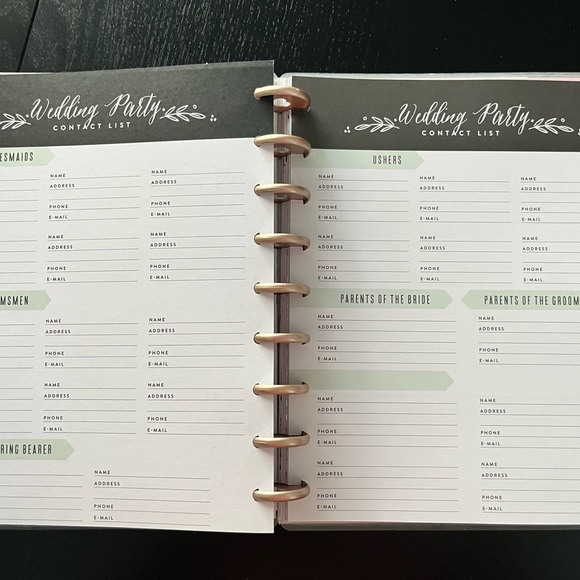 Wedding Party
CONTACT LIST
ESMAIDS
NAME NAME
ADDRESS ADDRESS
PHONE PHONE
E-MAIL E-MAIL
NAME NAME
ADDRESS ADDRESS
PHONE PHONE
E-MAIL E-MAIL
MSMEN
NAME NAME
ADDRESS ADDRESS
PHONE PHONE
E-MAIL E-MAIL
NAME NAME
ADDRESS ADDRESS
PHONE PHONE
E-MAIL E-MAIL
RING BEARER
NAME
ADDRESS
PHONE
E-MAIL
Wedding Party
CONTACT LIST
USHERS
NAME NAME NAME
ADDRESS ADDRESS ADDRESS
PHONE PHONE PHONE
E-MAIL E-MAIL E-MAIL
NAME NAME NAME
ADDRESS ADDRESS ADDRESS
PHONE PHONE PHONE
E-MAIL E-MAIL E-MAIL
PARENTS OF THE BRIDE PARENTS OF THE GROOM
NAME NAME
ADDRESS ADDRESS
PHONE PHONE
E-MAIL E-MAIL
NAME NAME
ADDRESS ADDRESS
PHONE PHONE
E-MAIL E-MAIL
NAME NAME
ADDRESS ADDRESS
PHONE PHONE
E-MAIL E-MAIL